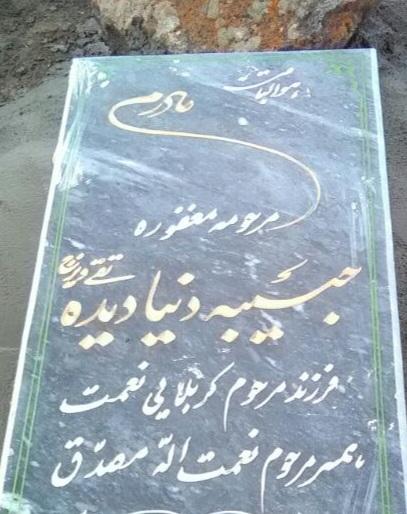 هوالباقی
مادرم
مرحومه مغفوره
حبیبه دنیا دیده
فرزند مرحوم کربلایی نعمت
همسر مرحوم نعمت الله مصدق